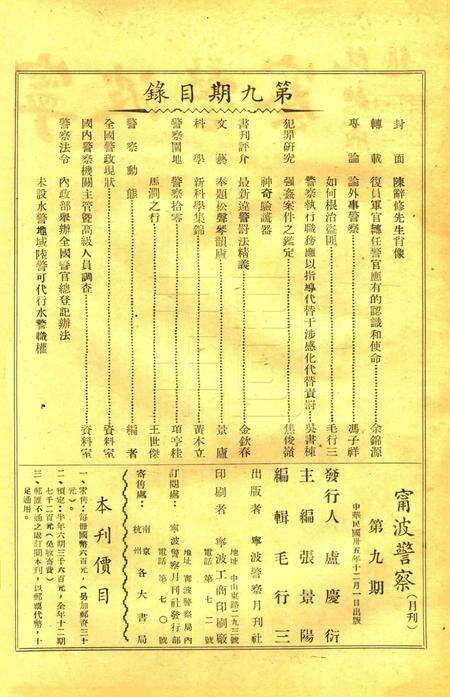 第九期目錄
封面 陳辭修先生肖像
轉載 復員軍官轉任警官應有的認識和使命 余錦源
專論 論外事警察 馮子祥
如何根治盜匪 毛行三
警察執行職務應以指導代替干涉感化代替責罰 吳書棟
犯罪研究 强姦案件之鑑定 焦俊嶺
神奇驗謊器
書刊評介 最新違警罰法精義 金欽春
文藝 奉題松聲琴韻廬 景廬
科學 新科學集錦 黃本立
警察園地 警察拾零 項亨桂
馬澗之行 王世傑
警察動態 編者
全國警政現狀 資料室
國內警察機關主管暨高級人員調查 資料室
警察法令 內政部舉辦全國警官總登記辦法
未設水警地域陸警可代行水警職權
甯波警察(月刊)
第九期
中華民國卅五年十二月一日出版
發行人 盧慶衍
主編 張景陽
編輯 毛行三
出版者 甯波警察月刊社
地址 中山東路二九三號
印刷者 甯波工商印刷廠
電話第七二號
地址 甯波警察局內
訂閱處: 甯波警察月刊社發行部
電話第七〇號
寄售處: 南京 杭州 各大書局
本刊價目
一 零售:每册國幣六百元,(另加郵資三十元)。
二、預定:半年六期三千六百元,全年十二期七千二百元(免收寄費)
三、郵匯不通之處訂閱本刊,以郵票代幣,十足通用。